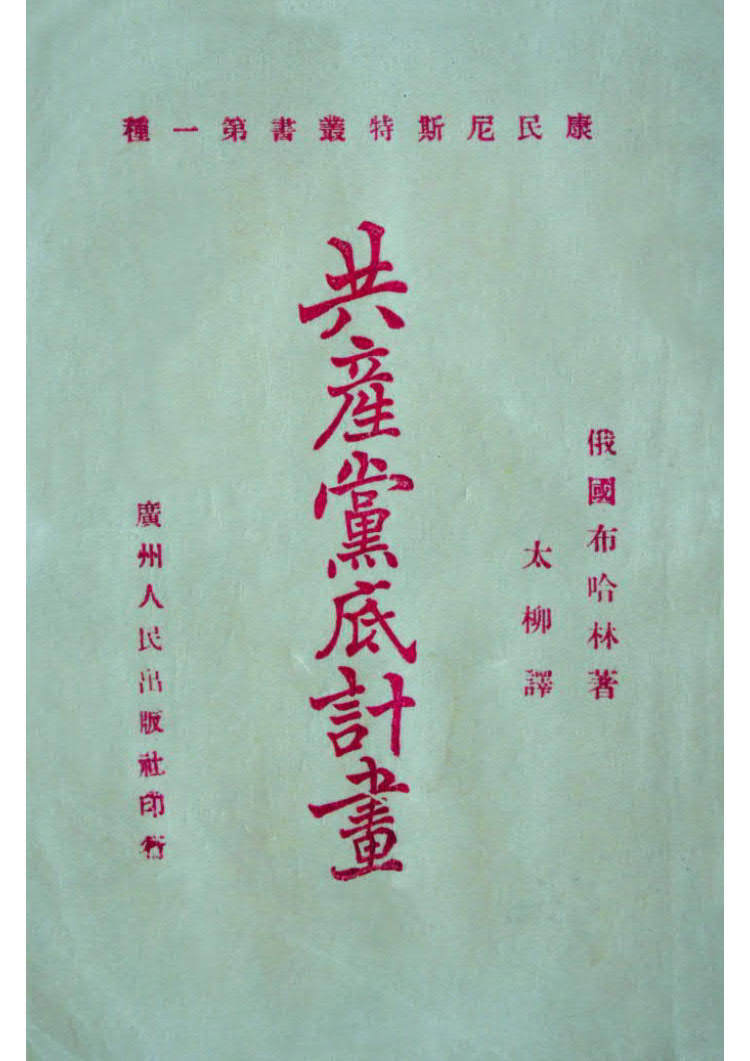 康民尼斯特叢書第一種
俄國布哈林著
太柳譯
共產黨底計畫
廣州人民出版社印行